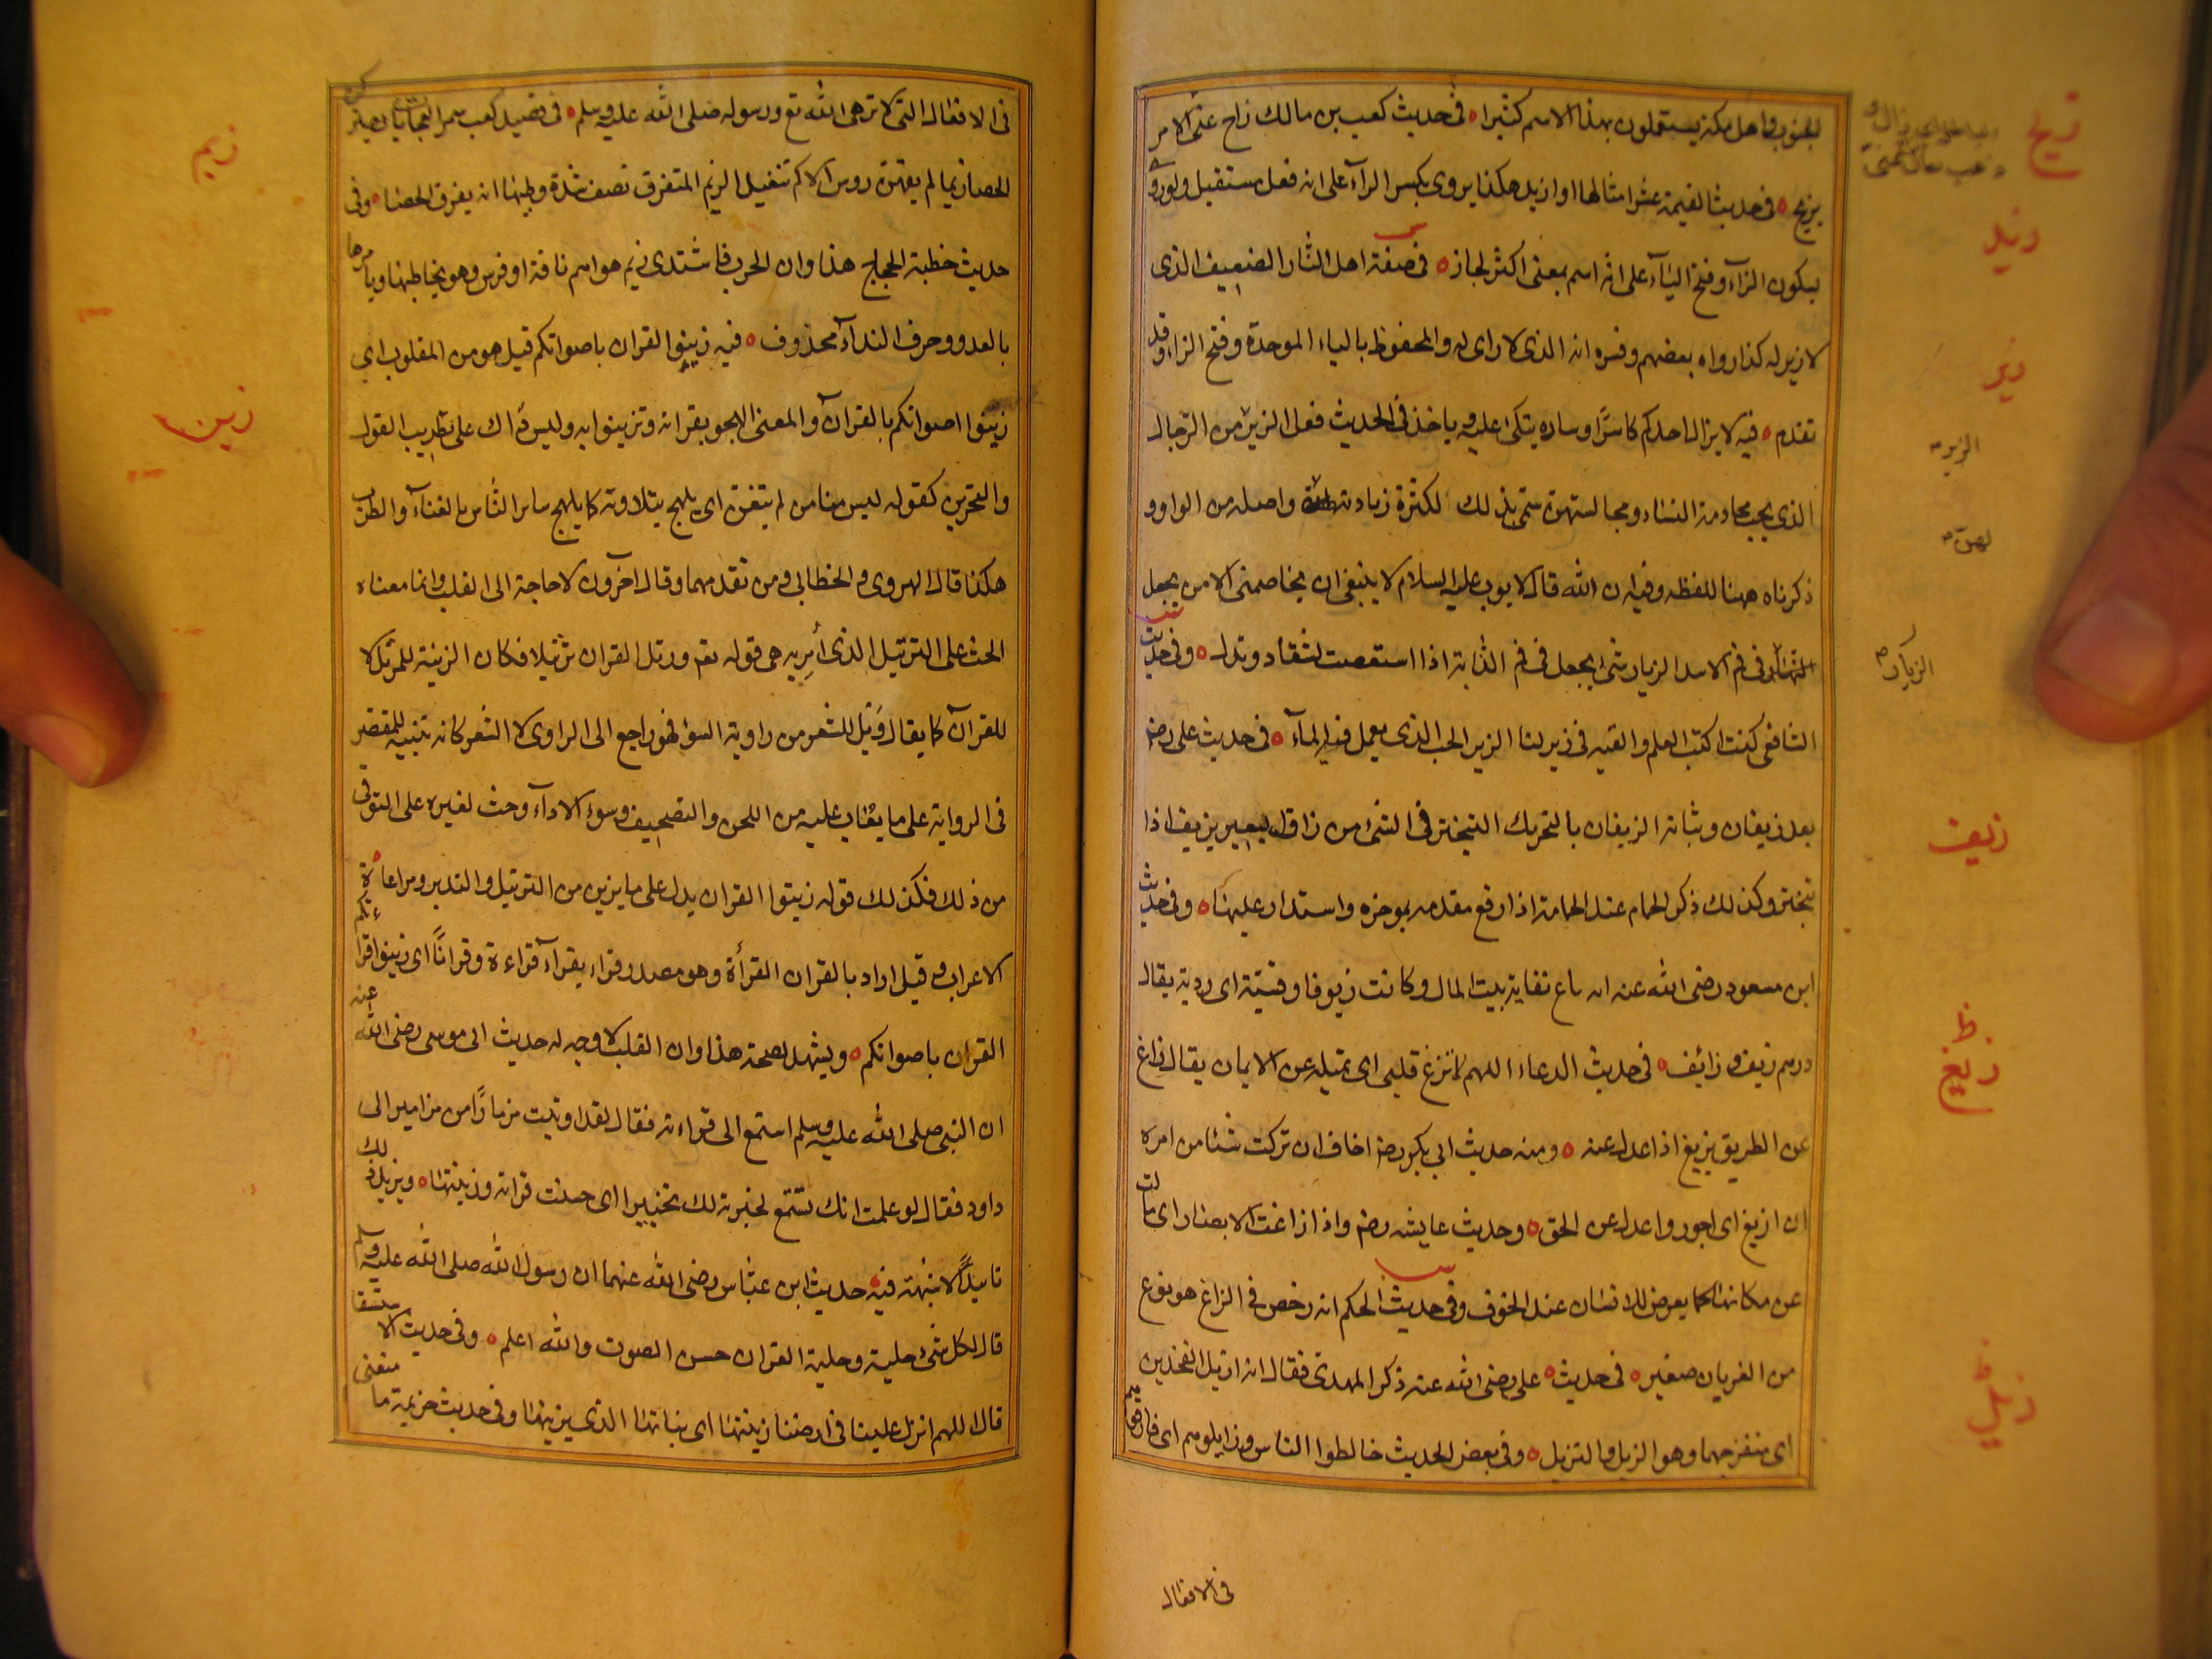 لجنوب واهل مكة يستعملون بهذا الاسم كثيرا ٥ فى حديث كعب بن مالك زاح عنى الامر
يزيح ٥ فى حديث القيمة عشرا مثالها او ازيد هكذا يروى بكسر الزآء على انه فعل مستقبل ولو روى
بسكون الزآء وفتح اليآء على انه اسم بمعنى اكثر لجاز ٥ فى صفة اهل النار الضعيف الذى
لا زير له كذا رواه بعضهم وفسره انه الذى لا راى له والمحفوظ بالباء الموحدة وفتح الزاء وقد
تقدم ٥ فيه لا يزال احدكم كاسرًا وساده يتكى عليه وياخذ فى الحديث فعل الزير من الرجال
الذى يحب محادثة النساء ومجالستهن سمى بذلك لكثرة زيارته واصله من الواو و
ذكرناه ههنا للفظه وفيه ان الله قال لايوب عليه السلام لا ينبغى ان يخاصمنى الا من يجعل
الزيار فى فم الاسد الزيار شى يجعل فى فم الدابة اذا استصعبت لتنقاد وتذل ٥ وفى حديث
الشافعى كنت اكتب العلم والقيه فى زير لنا الزير الحب الذى يعمل فيه المآء ٥ فى حديث على رضـ
بعد زيفان وثباته الزيفان بالتحريك التبختر فى الشئ من زاف البعير يزيف اذا
تبختر وكذلك ذكر الحمام عند الحمامة اذا رفع مقدمه بموخره واستدار عليها ٥ وفى حديث
ابن مسعود رضى الله عنه انه باع نفاية بيت المال وكانت زيوفا وقسية اى ردية يقال
درهم زيف و زائف ٥ فى حديث الدعاء اللهم لا تزغ قلبى اى تميله عن الايمان يقال زاغ
عن الطريق يزيغ اذا عدل عنه ٥ ومنه حديث ابى بكر رضـ اخاف ان تركت شئا من امره
ان ازيغ اى اجور واعدل عن الحق ٥ وحديث عايشه رضـ واذا زاغت الابصار اى مالت
عن مكانها كما يعرض للانسان عند الخوف وفى حديث الحكم انه رخص فى الزاغ هو نوع
من الغربان صغير ٥ فى حديث على رضى الله عنه ذكر المهدى فقال انه ازيل الفخذين
اى منفرجهما وهو الزيل والتزيل ٥ وفى بعض الحديث خالطوا الناس وزايلوهم اى فارقوهم
فى الافعال
زيح
زيد
زير
الزيار
زيف
زيغ
زيل
فى الافعال التى لا ترضى الله تع ورسوله صلى الله عليه وسلم ٥ فى قصيد كعب سمر العجايات يتركن
الحصا زيما لم يقهن روس الاكم تنعيل الزيم المتفرق تصف شدة وطيها انه يفرق الحصا ٥ وفى
حديث خطبة الحجاج هذا اوان الحرب فاشتدى زيم هو اسم ناقة او فرس وهو يخاطبها ويامرها
بالعدو وحرف الندآء محذوف ٥ فيه زينوا القران باصواتكم قيل هو من المقلوب اى
زينوا اصواتكم بالقرآن والمعنى الهجو بقراته وتزينوا به وليس ذلك على تطريب القول
والتحزين كقوله ليس منا من لم يتغن اى يلهج بتلاوته كما يلهج ساير الناس بالغنآء والطرب
هكذا قال الهروى والخطابى ومن تقدمهما وقال آخرون لا حاجة الى القلب وانما معناه
الحث على الترتيل الذى أمر به فى قوله تع ورتل القران ترتيلا فكان الزينة للمرتل لا
للقرآن كما يقال ويل للشعر من راوية السوء فهو راجع الى الراوى لا الشعر كانه تنبيه للمقصر
فى الرواية على ما يعاب عليه من اللحن والتصحيف وسوء الادآء وحث لغيره على التوقى
من ذلك فكذلك قوله زينوا القران يدل على ما يزين من الترتيل والتدبر ومراعاة
الاعراب و قيل اراد بالقران القرأة وهو مصدر قراء يقرآء قراءة وقرانًا اى زينوا قراءتكم
القران باصواتكم ٥ ويشهد لصحة هذا وان القلب لا وجه له حديث ابى موسى رضى الله عنه
ان النبى صلى الله عليه وسلم استمع الى قراءته فقال لقد اوتيت مزمارًا من مزامير ال
داود فقال لو علمت انك تستمع لحبرته لك تحبيرا اى حسنت قراته وزينتها ٥ ويزيد ذلك
تاييدًا لا شبهة فيه حديث ابن عباس رضى الله عنهما ان رسول الله صلى الله عليه وسلم
قال لكل شئ حلية وحلية القران حسن الصوت والله اعلم ٥ وفى حديث الاستسقا
قال اللهم انزل علينا فى ارضنا زينتها اى نباتها الذى يزينها وفى حديث خزيمة ما منعنى
زيم
زين